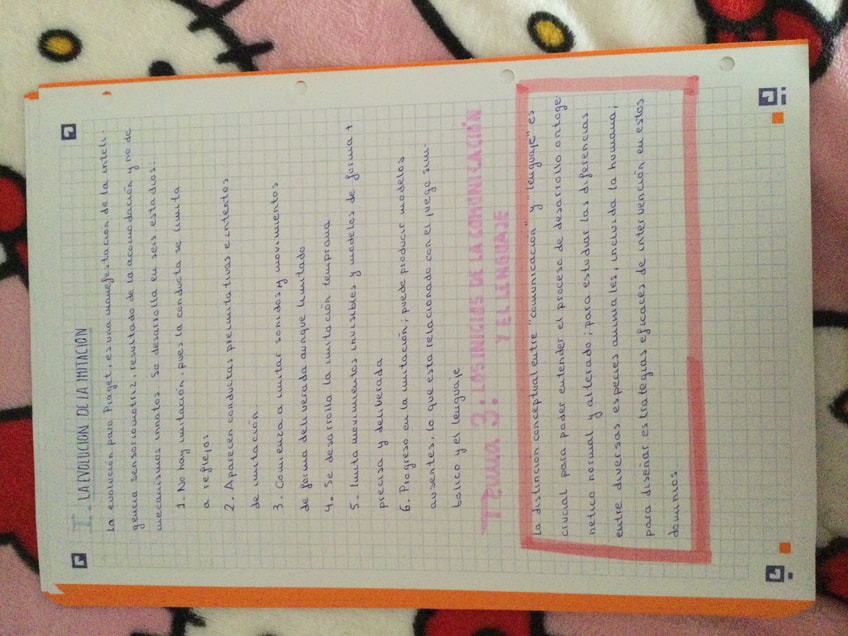 I. LA EVOLUCIÓN DE LA IMITACIÓN
la evolución para Piaget, es una manifestación de la inteli
gencia sensoriomotriz, resultado de la acomodación y no de
mecanismos innatos. Se desarrolla en seis estadios:
1. No hay imitación, pues la conducta se limita
a reflejos
2. Aparecen conductas preimitativas e intentos
de imitación.
3. Comienza a imitar sonidos y movimientos
de forma deliverada aunque limitado
4. Se desarrolla la imitación temprana
5. Imita movimientos invisibles y modelos de forma +
precisa y deliberada
6. Progreso en la imitación; puede producir modelos
ausentes, lo que esta relacionado con el juego sim-
bólico y el lenguaje
Tema 3: LOS INICIOS DE LA COMUNICACIÓN
Y EL LENGUAJE
La distinción conceptual entre "comunicación" y "lenguaje" es
crucial para poder entender el proceso de desarrollo ontoge
nético normal y alterado; para estudiar las diferencias
entre diversas especies animales, incluida la humana;
para diseñar estrategias eficaces de intervención en estos
dominios.